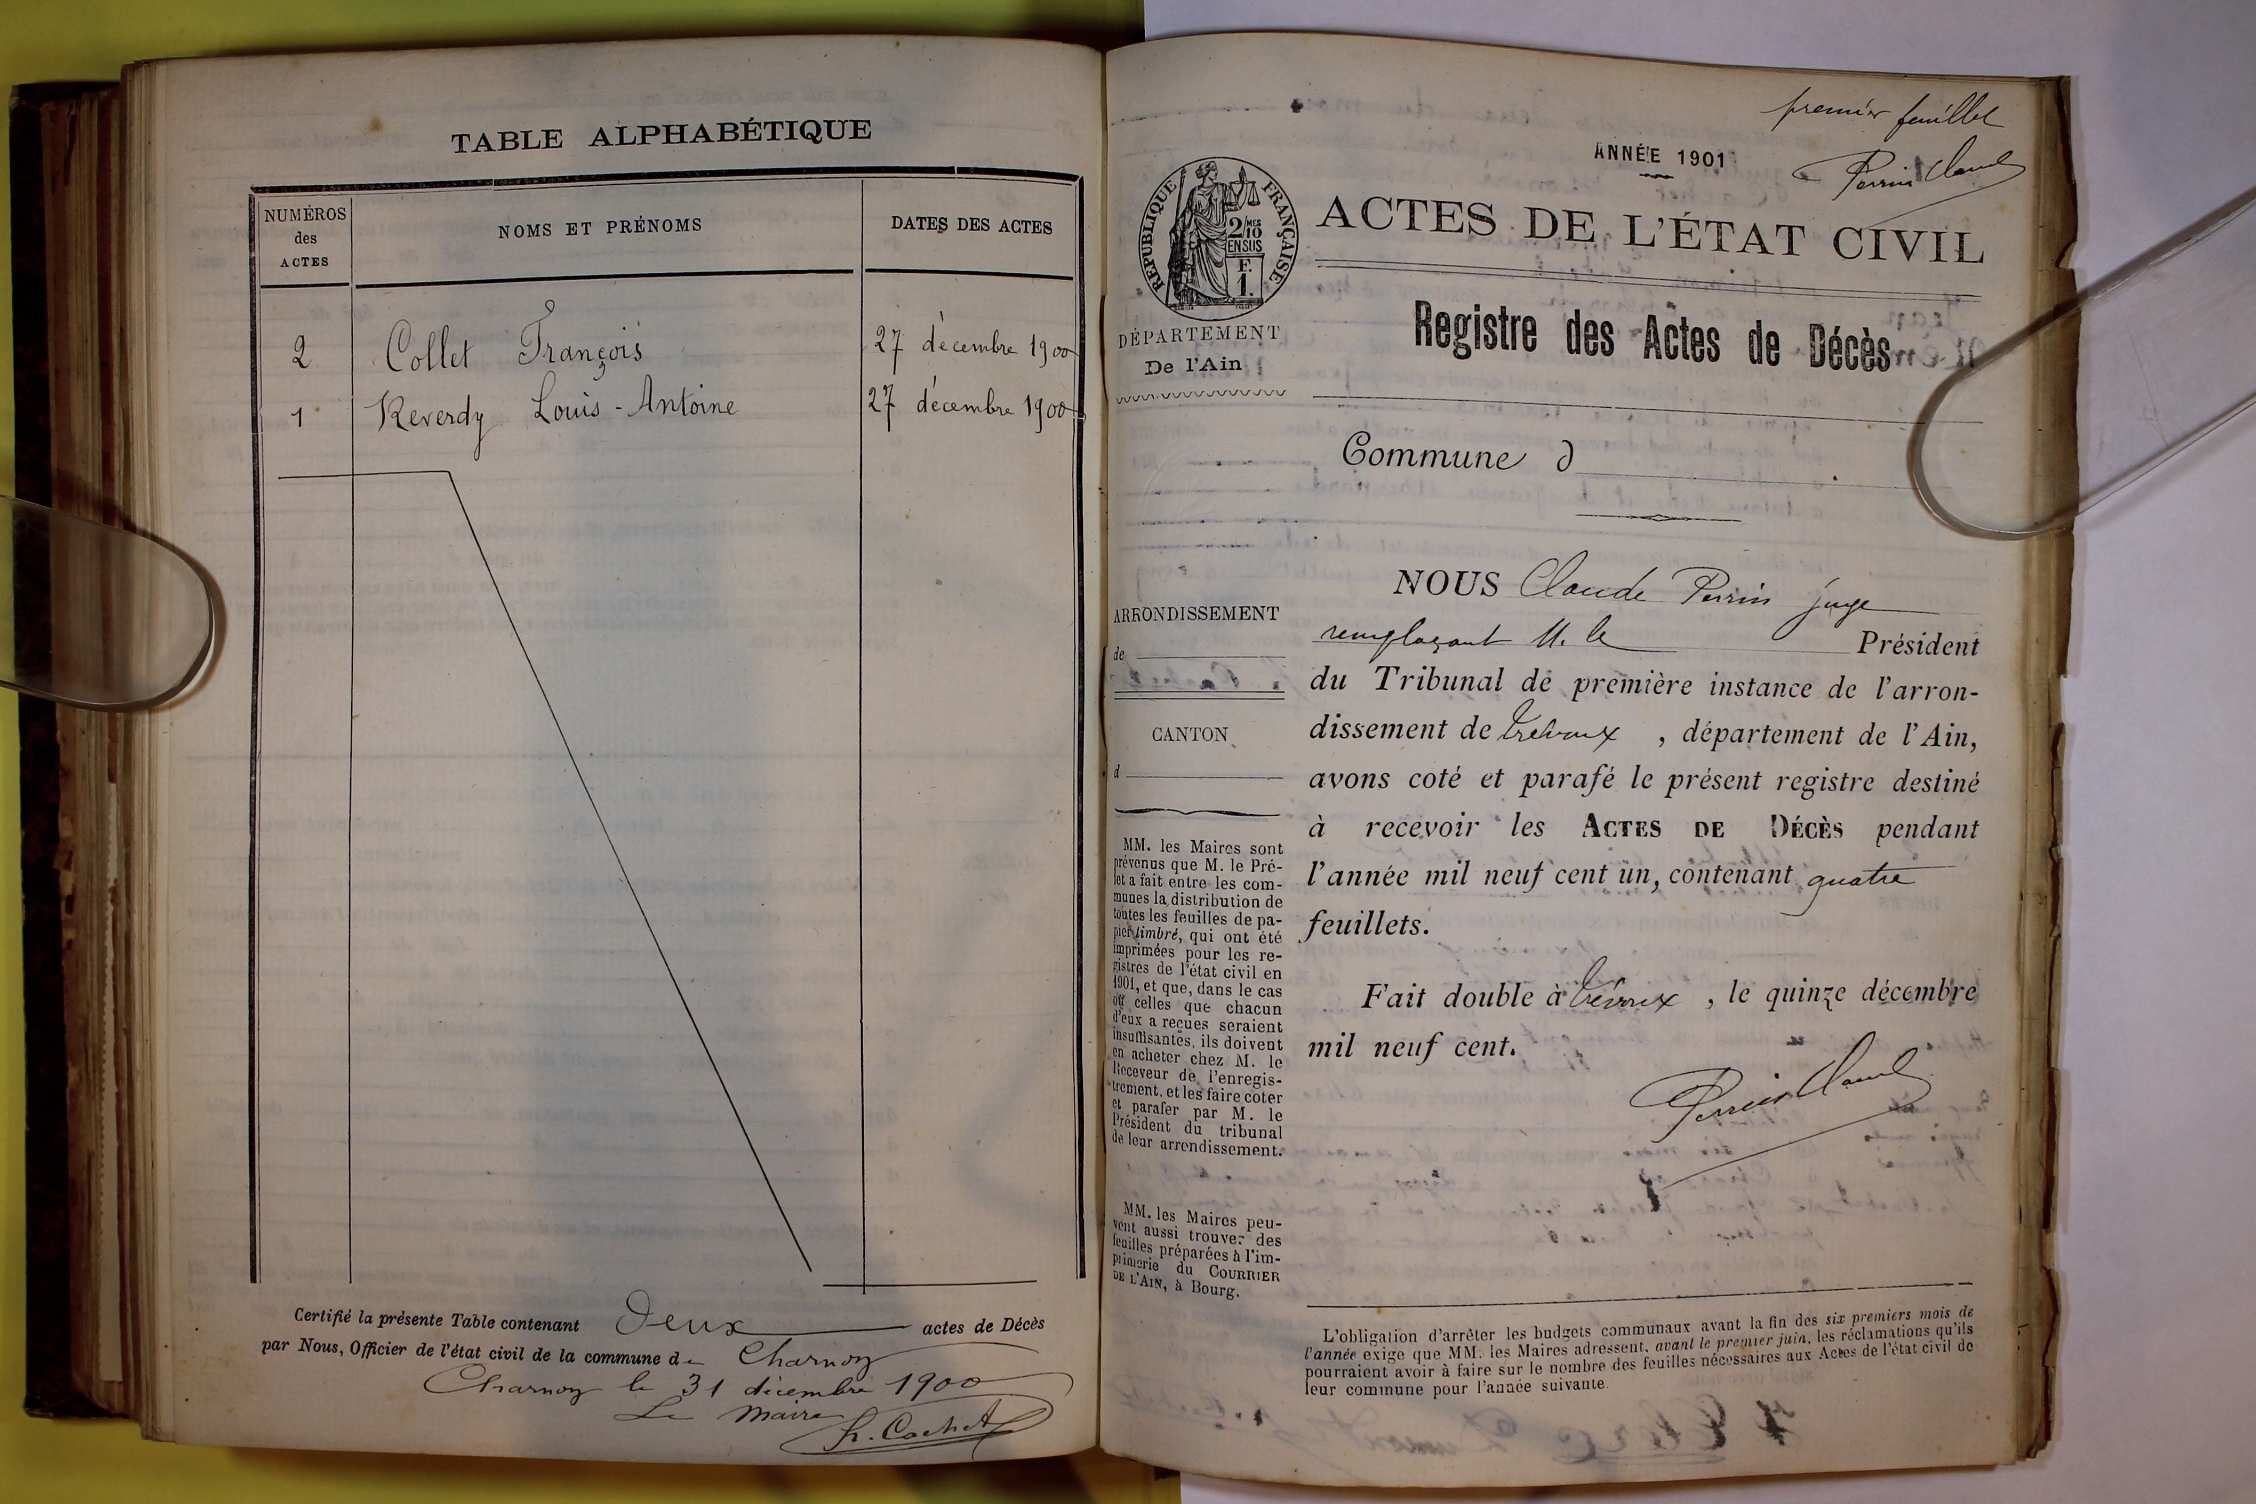 TABLE ALPHABÉTIQUE
NUMÉROS
des
ACTES
NOMS ET PRÉNOMS
DATES DES ACTES
2 Collet François 27 décembre 1900
1 Reverdy Louis-Antoine 27 décembre 1900
Certifié la présente Table contenant Deux actes de Décès
par Nous, Officier de l'état civil de la commune de Charnoz
Charnoz le 31 décembre 1900
Le Maire
Cochet
premier feuillet
Perrin Claude
ANNÉE 1901
RÉPUBLIQUE FRANÇAISE
2/10 MES
EN SUS
F.
1.
ACTES DE L'ÉTAT CIVIL
Registre des Actes de Décès
DÉPARTEMENT
De l'Ain
Commune d
ARRONDISSEMENT
de
CANTON
d
MM. les Maires sont
prévenus que M. le Pré-
fet a fait entre les com-
munes la distribution de
toutes les feuilles de pa-
pier timbré, qui ont été
imprimées pour les re-
gistres de l'état civil en
1901, et que, dans le cas
où celles que chacun
d'eux a reçues seraient
insuffisantes, ils doivent
en acheter chez M. le
Receveur de l'enregis-
trement, et les faire coter
et parafer par M. le
Président du tribunal
de leur arrondissement.
MM. les Maires peu-
vent aussi trouver des
feuilles préparées à l'im-
primerie du COURRIER
DE L'AIN, à Bourg.
NOUS Claude Perrin juge
remplaçant M. le Président
du Tribunal de première instance de l'arron-
dissement de Trévoux , département de l'Ain,
avons coté et parafé le présent registre destiné
à recevoir les ACTES DE DÉCÈS pendant
l'année mil neuf cent un, contenant quatre
feuillets.
Fait double à Trévoux , le quinze décembre
mil neuf cent.
Perrin Claude
L'obligation d'arrêter les budgets communaux avant la fin des six premiers mois de
l'année exige que MM. les Maires adressent, avant le premier juin, les réclamations qu'ils
pourraient avoir à faire sur le nombre des feuilles nécessaires aux Actes de l'état civil de
leur commune pour l'année suivante.